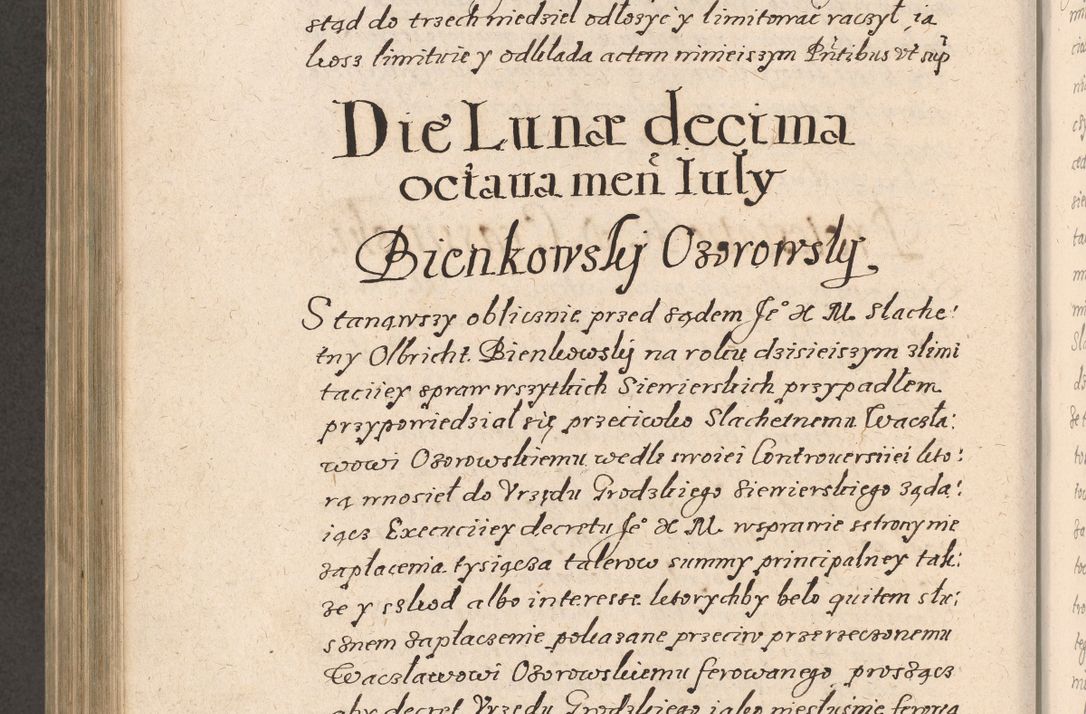 stąd do trzech niedziel odłozyć y limitować raczył ia
kosz limituie y odkłada actem ninieiszym Pntibus vt sup
Die Lunæ decima
octaua men Iuly
Bienkowskij Ozorowskij
Stanąwszy oblicznie przed sądem Je° X M. slache:
tny Olbricht Bienkowskij na roku dzisieiszym z limi
taciiey spraw wszytkich Siewierskich przypadłem
przypowiedział się przeciwko Slachetnemu Wacła:
wowi Ozorowskiemu wedle swoiei Controuersiiei kto:
rą wnosieł do Vrzędu Grodzkiego Siewierskiego ząda:
iącz Execuciiey decretu Je° X M. wsprawie sstrony nie
zapłacenia tysiącza talerow summy principalney tak:
ze y szkod albo interesse ktorychby beło quitem słu:
sznem zapłaczenie pokazane przeciw przerzeczonemu
Wacławowi Ozorowskiemu ferowanego proszącz
aby decret Vrzędu Grodzkiego iako niesłusznie ferowa